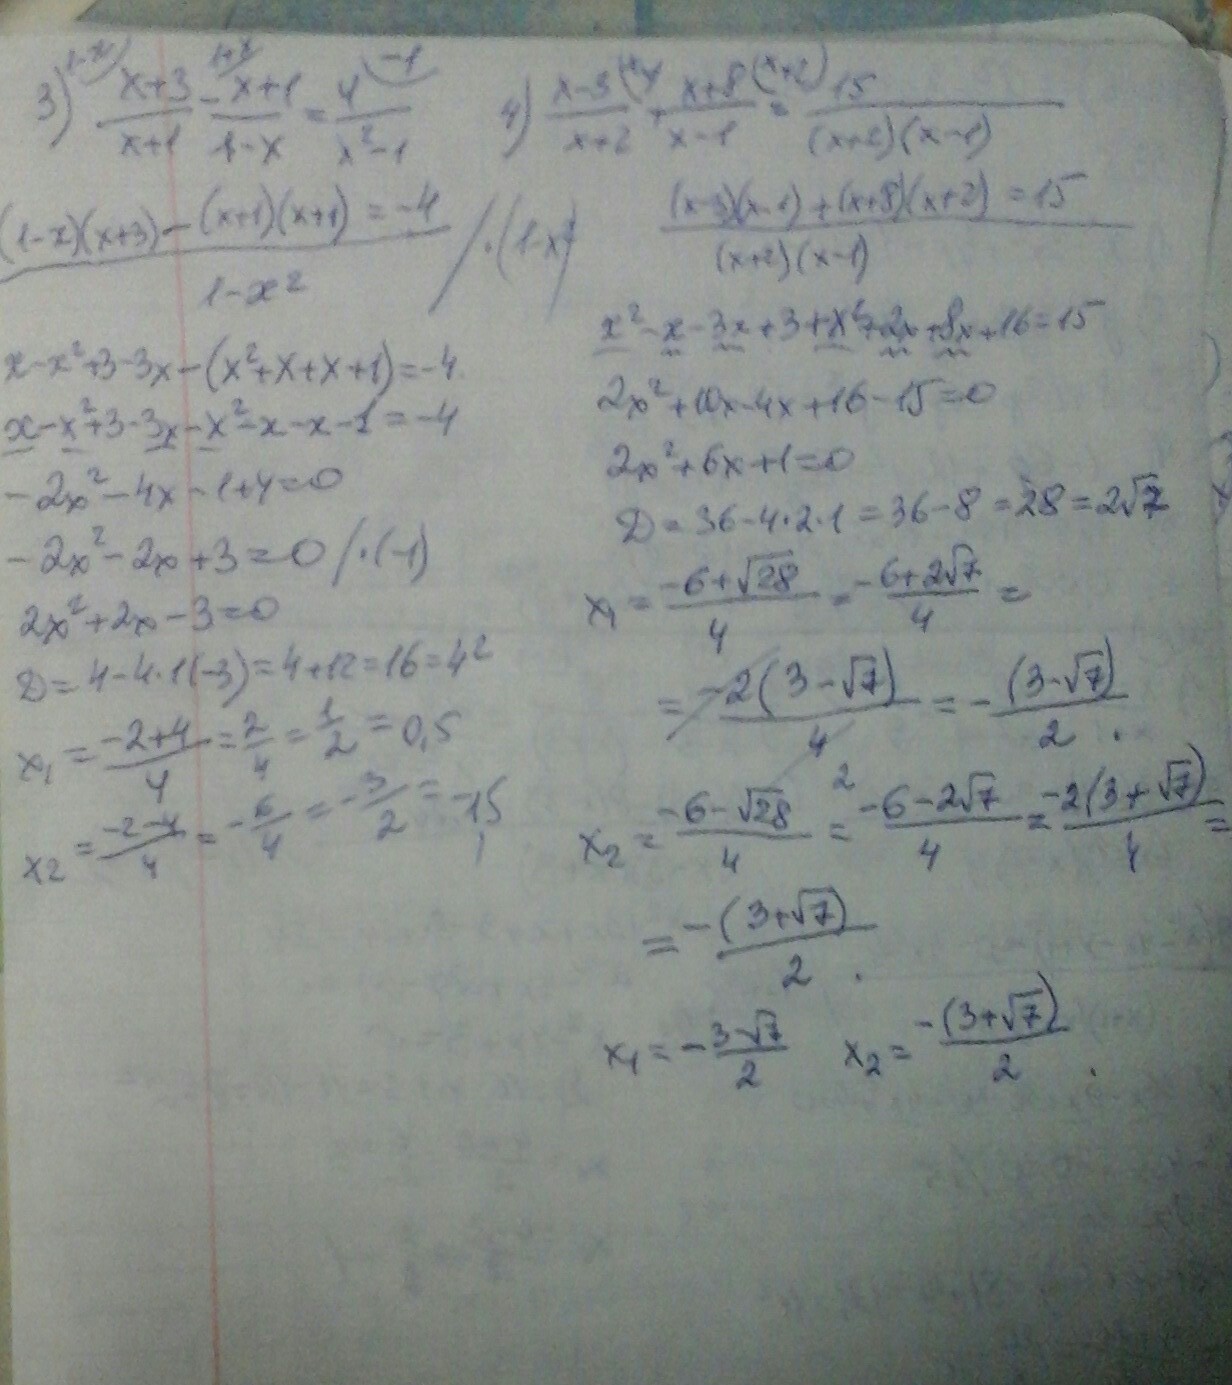 3) (x+3)/(x+1) ^(1-x) - (x+1)/(1-x) ^(1+x) = 4/(x²-1) ^(-1)
((1-x)(x+3) - (x+1)(x+1) = -4)/(1-x²) / ·(1-x²)
x-x²+3-3x-(x²+x+x+1)=-4
x-x²+3-3x-x²-x-x-1=-4
-2x²-4x-1+4=0
-2x²-2x+3=0 /·(-1)
2x²+2x-3=0
D=4-4·1(-3)=4+12=16=4²
x₁=(-2+4)/4=2/4=1/2=0,5
x₂=(-2-4)/4=-6/4=-3/2=-1,5
4) (x-3)/(x+2) ^(x-1) + (x+8)/(x-1) ^(x+2) = 15/((x+2)(x-1))
((x-3)(x-1)+(x+8)(x+2)=15)/((x+2)(x-1))
x²-x-3x+3+x²+2x+8x+16=15
2x²+10x-4x+16-15=0
2x²+6x+1=0
D=36-4·2·1=36-8=28=2√7
x₁=(-6+√28)/4=(-6+2√7)/4=
=-2(3-√7)/4=-(3-√7)/2.
x₂=(-6-√28)/4=(-6-2√7)/4=-2(3+√7)/4=
=-(3+√7)/2.
x₁=-(3-√7)/2 x₂=-(3+√7)/2.